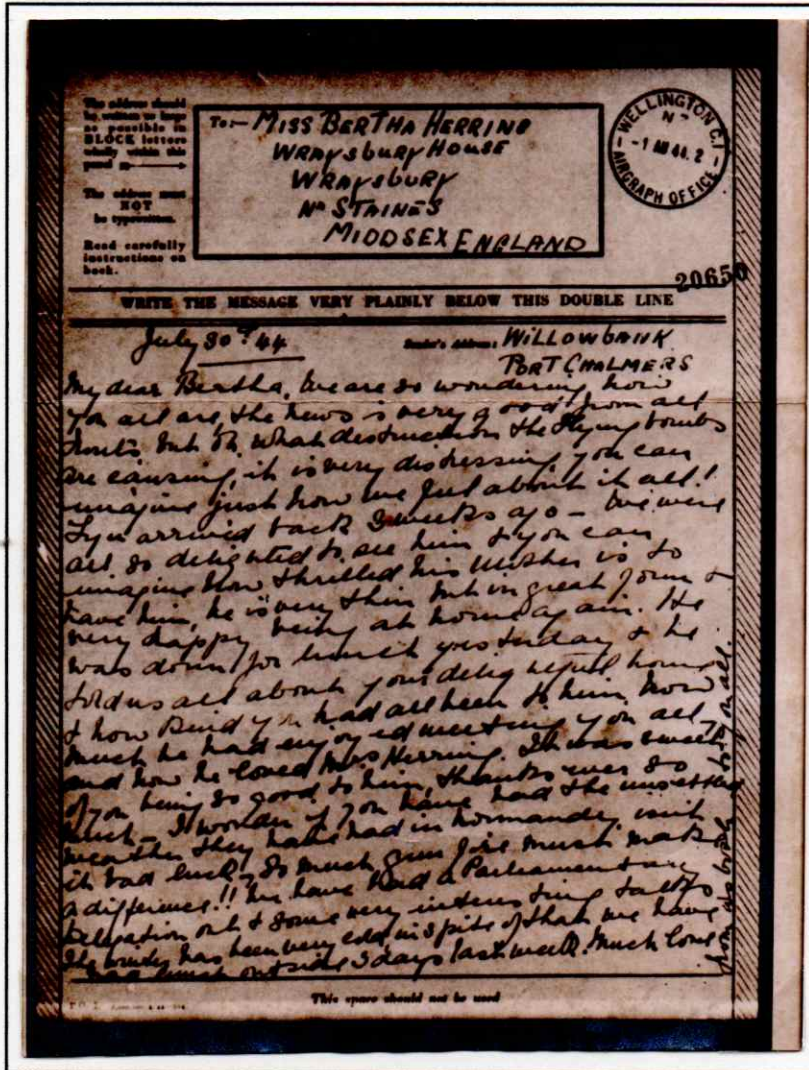 The address should
be written as large
as possible in
BLOCK letters
wholly within this
panel
The address must
NOT
be typewritten.
Read carefully
instructions on
back.
To:- MISS BERTHA HERRING
WRAYSBURY HOUSE
WRAYSBURY
Nr STAINES
MIDDSEX ENGLAND
WELLINGTON C.1
N Z
-1 AU 44. 2
AIRGRAPH OFFICE
20650
WRITE THE MESSAGE VERY PLAINLY BELOW THIS DOUBLE LINE
July 30th 44
Sender's Address: WILLOWBANK
PORT CHALMERS
My dear Bertha, We are so wondering how
you all are, the news is very good from all
fronts but oh, what destruction the flying bombs
are causing, it is very distressing you can
imagine just how we feel about it all!
arrived back 3 weeks ago - We were
all so delighted to see him & you can
imagine how thrilled his mother is to
have him, he is very thin but in great form &
very happy being at home again. He
was down for lunch yesterday & he
told us all about your delightful home
& how kind you had all been to him, how
much he had enjoyed meeting you all,
and how he loved Mrs Herring. It was sweet
of you being so good to him, thanks ever so
much - I wonder if you have had the unsettled
weather they have had in Normandy, isn't
it bad luck, so much gun fire must make
a difference!! We have had a Parliamentary
Delegation out & some very interesting talks
The winter has been very cold, in spite of that we have
had lunch outside 3 days last week. Much love
from us both to you all.
This space should not be used